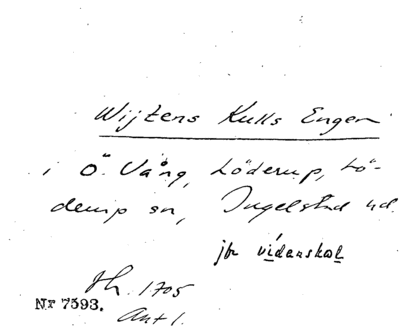 Wijtens Kulls Engen
i Ö. Vång, Löderup, Lö-
derup sn, Ingelstad hd.
jfr vídanskal
Hh. 1705
Nr 7593.
Ant 1.